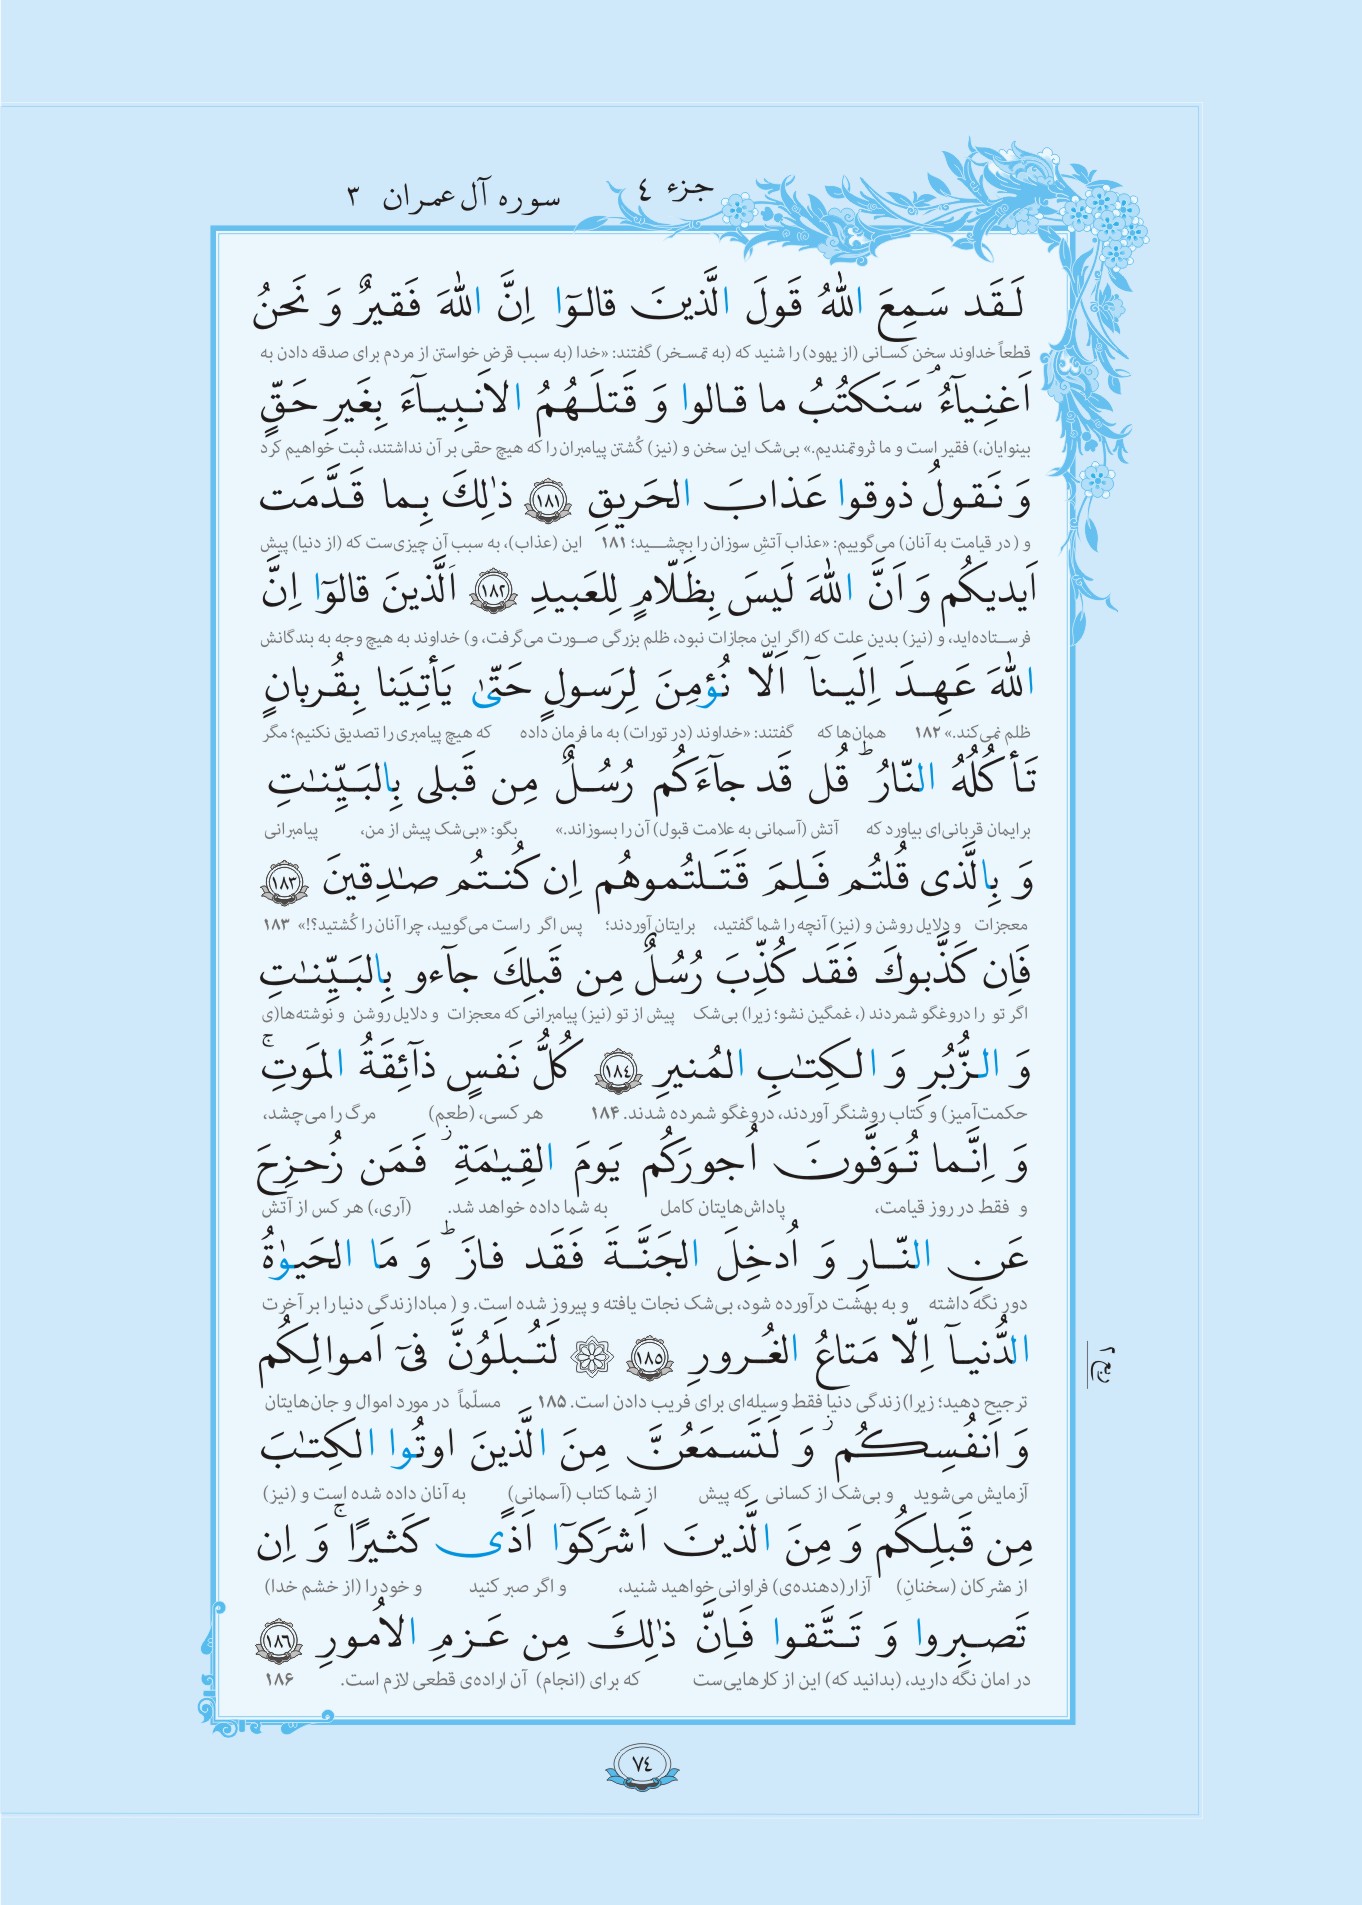 جزء ٤
سوره آل عمران ٣
لَقَد سَمِعَ اللّٰهُ قَولَ الَّذینَ قالوٓا اِنَّ اللّٰهَ فَقیرٌ وَ نَحنُ
قطعاً خداوند سخن کسانی (از یهود) را شنید که (به تمسخر) گفتند: «خدا (به سبب قرض خواستن از مردم برای صدقه دادن به
اَغنِیآءُ ۘ سَنَکتُبُ ما قالوا وَ قَتلَهُمُ الاَنبِیآءَ بِغَیرِ حَقٍّ
بینوایان،) فقیر است و ما ثروتمندیم.» بی‌شک این سخن و (نیز) کُشتن پیامبران را که هیچ حقی بر آن نداشتند، ثبت خواهیم کرد
وَ نَقولُ ذوقوا عَذابَ الحَریقِ ﴿١٨١﴾ ذٰلِكَ بِما قَدَّمَت
و (در قیامت به آنان) می‌گوییم: «عذاب آتشِ سوزان را بچشید؛ ۱۸۱ این (عذاب)، به سبب آن چیزی‌ست که (از دنیا) پیش
اَیدیکُم وَ اَنَّ اللّٰهَ لَیسَ بِظَلّامٍ لِلعَبیدِ ﴿١٨٢﴾ اَلَّذینَ قالوٓا اِنَّ
فرستاده‌اید، و (نیز) بدین علت که (اگر این مجازات نبود، ظلم بزرگی صورت می‌گرفت، و) خداوند به هیچ وجه به بندگانش
اللّٰهَ عَهِدَ اِلَینآ اَلّا نُؤمِنَ لِرَسولٍ حَتّیٰ یَأتِیَنا بِقُربانٍ
ظلم نمی‌کند.» ۱۸۲ همان‌ها که گفتند: «خداوند (در تورات) به ما فرمان داده که هیچ پیامبری را تصدیق نکنیم؛ مگر
تَأکُلُهُ النّارُ ؕ قُل قَد جآءَکُم رُسُلٌ مِن قَبلی بِالبَیِّنٰتِ
برایمان قربانی‌ای بیاورد که آتش (آسمانی به علامت قبول) آن را بسوزاند.» بگو: «بی‌شک پیش از من، پیامبرانی
وَ بِالَّذی قُلتُم فَلِمَ قَتَلتُموهُم اِن کُنتُم صٰدِقینَ ﴿١٨٣﴾
معجزات و دلایل روشن و (نیز) آنچه را شما گفتید، برایتان آوردند؛ پس اگر راست می‌گویید، چرا آنان را کُشتید؟!» ۱۸۳
فَاِن کَذَّبوكَ فَقَد کُذِّبَ رُسُلٌ مِن قَبلِكَ جآءو بِالبَیِّنٰتِ
اگر تو را دروغگو شمردند (، غمگین نشو؛ زیرا) بی‌شک پیش از تو (نیز) پیامبرانی که معجزات و دلایل روشن و نوشته‌ها(ی
وَ الزُّبُرِ وَ الکِتٰبِ المُنیرِ ﴿١٨٤﴾ کُلُّ نَفسٍ ذآئِقَةُ المَوتِ ۚ
حکمت‌آمیز) و کتاب روشنگر آوردند، دروغگو شمرده شدند. ۱۸۴ هر کسی، (طعم) مرگ را می‌چشد،
وَ اِنَّما تُوَفَّونَ اُجورَکُم یَومَ القِیٰمَةِ ۖ فَمَن زُحزِحَ
و فقط در روز قیامت، پاداش‌هایتان کامل به شما داده خواهد شد. (آری،) هر کس از آتش
عَنِ النّارِ وَ اُدخِلَ الجَنَّةَ فَقَد فازَ ؕ وَ مَا الحَیوٰةُ
دور نگه داشته و به بهشت درآورده شود، بی‌شک نجات یافته و پیروز شده است. و (مبادا زندگی دنیا را بر آخرت
الدُّنیآ اِلّا مَتاعُ الغُرورِ ﴿١٨٥﴾ ۞ لَتُبلَوُنَّ فیٓ اَموالِکُم
ترجیح دهید؛ زیرا) زندگی دنیا فقط وسیله‌ای برای فریب دادن است. ۱۸۵ مسلّماً در مورد اموال و جان‌هایتان
ربع ٢
وَ اَنفُسِکُم ۖ وَ لَتَسمَعُنَّ مِنَ الَّذینَ اوتُوا الکِتٰبَ
آزمایش می‌شوید و بی‌شک از کسانی که پیش از شما کتاب (آسمانی) به آنان داده شده است و (نیز)
مِن قَبلِکُم وَ مِنَ الَّذینَ اَشرَکوٓا اَذًی کَثیرًا ۚ وَ اِن
از مشرکان (سخنانِ) آزار(دهنده‌ی) فراوانی خواهید شنید، و اگر صبر کنید و خود را (از خشم خدا)
تَصبِروا وَ تَتَّقوا فَاِنَّ ذٰلِكَ مِن عَزمِ الاُمورِ ﴿١٨٦﴾
در امان نگه دارید، (بدانید که) این از کارهایی‌ست که برای (انجام) آن اراده‌ی قطعی لازم است. ۱۸۶
٧٤